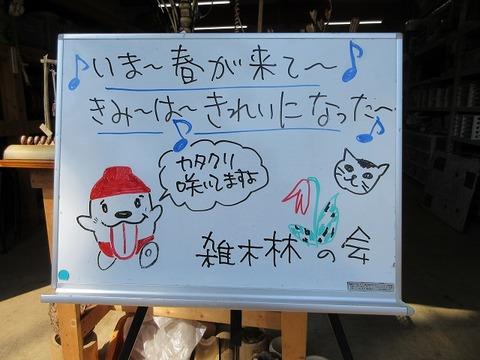 いま～春が来て～
きみ～は～きれいになった～
カタクリ
咲いてますよ
雑木林の会